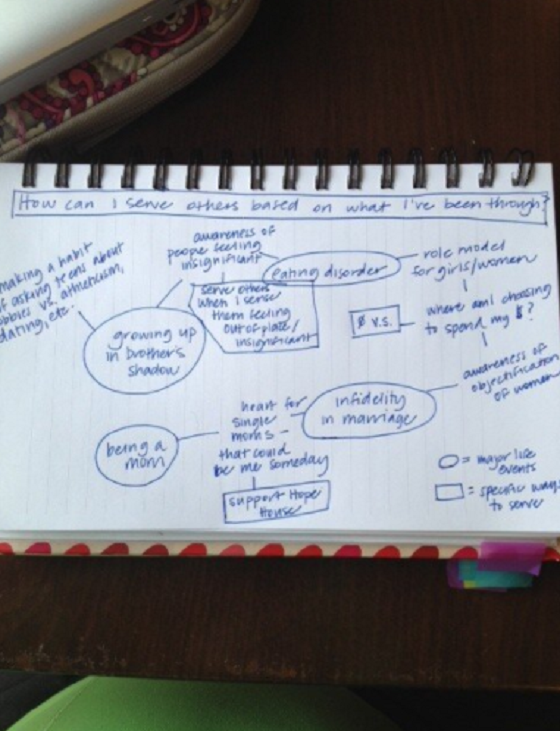 How can I serve others based on what I've been through?
making a habit
of asking teens about
hobbies vs. athleticism,
dating, etc.
awareness of
people feeling
insignificant
eating disorder
role model
for girls/women
serve others
when I sense
them feeling
out-of-place/
insignificant
growing up
in brother's
shadow
Ø V.S.
where am I choosing
to spend my $?
awareness of
objectification
of women
infidelity
in marriage
heart for
single
moms -
that could
be me someday
being a
mom
support Hope
House
= major life
events
= specific ways
to serve